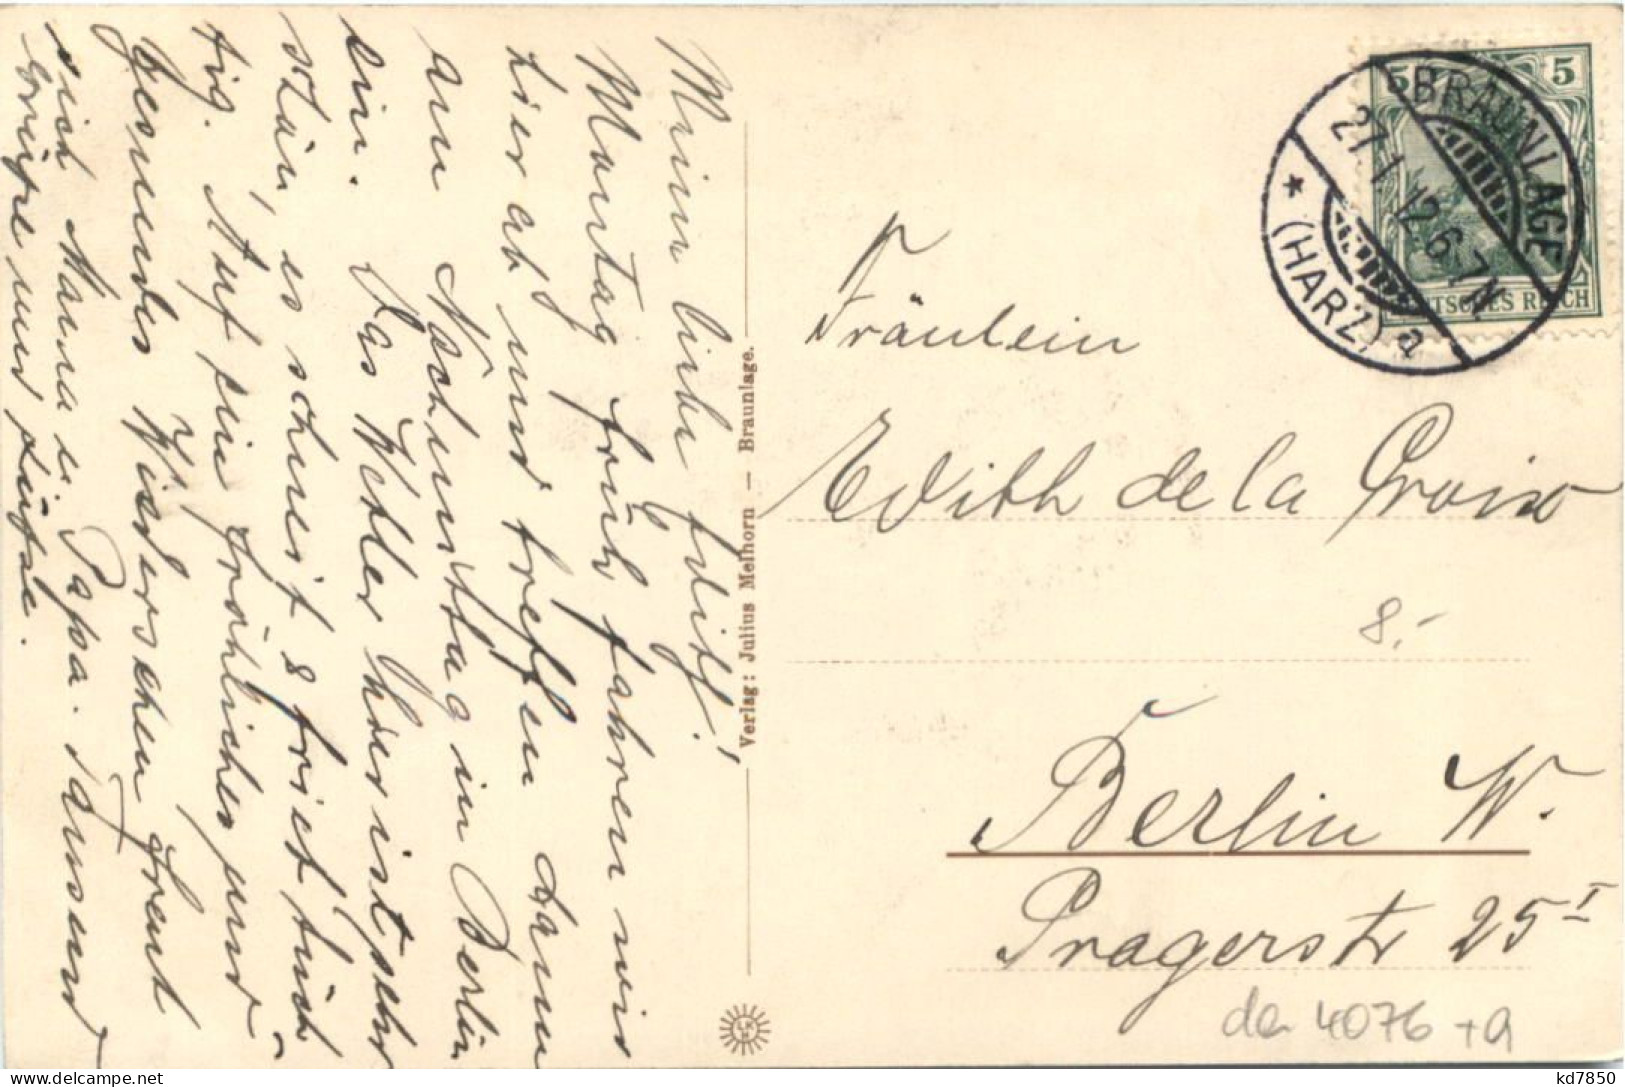 Meine liebe Edith!
Montag früh fahren wir
hier ab und treffen dann
am Nachmittag in Berlin
ein. Das Wetter hier ist sehr
schön, es schneit & friert tüch-
tig. Auf ein fröhliches und
gesundes Wiedersehen freut
sich Mama u. Papa. Tausend
Grüße und Küsse.
Verlag: Julius Melhorn — Braunlage.
5 5
DEUTSCHES REICH
BRAUNLAGE
27.1.12.6-7N
* (HARZ) a
Fräulein
Edith de la Croix
8.-
Berlin W.
Pragerstr 25 I
4076 +9
kd7850